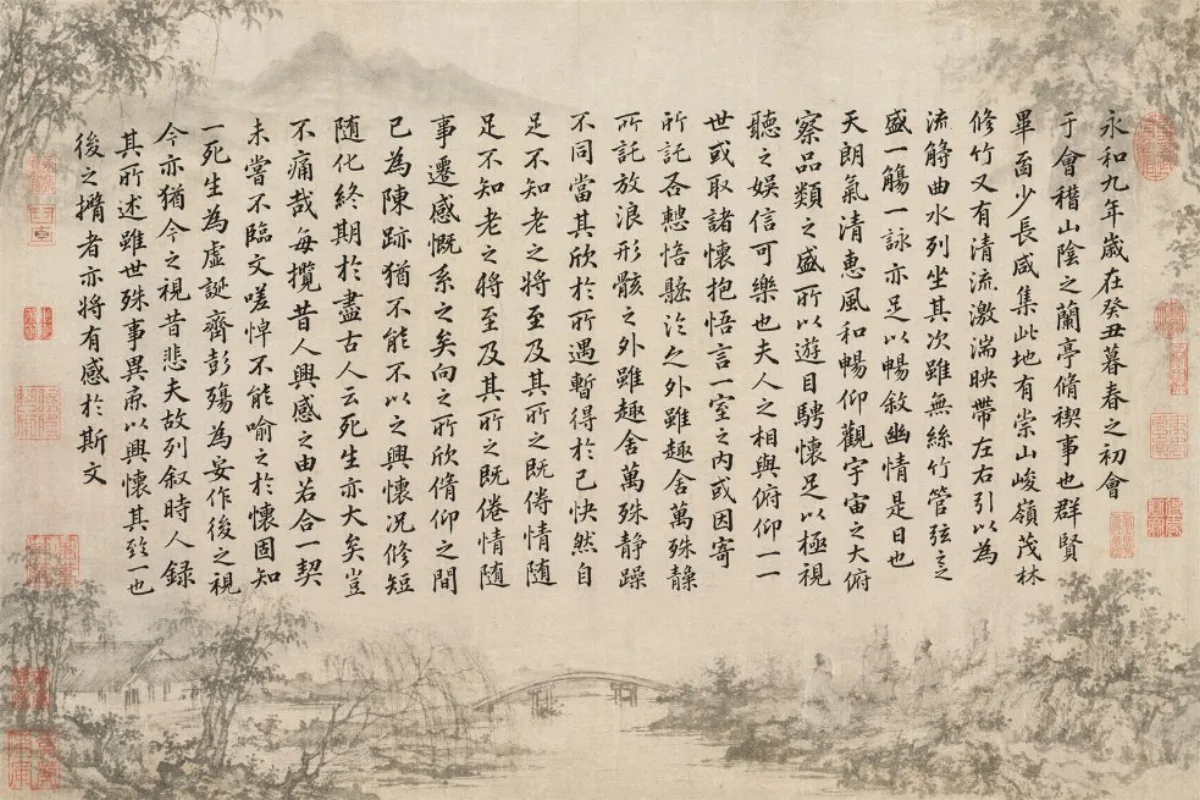 永和九年歲在癸丑暮春之初會
于會稽山陰之蘭亭脩禊事也群賢
畢少長咸集此地有崇山峻嶺茂林
修竹又有清流激湍映帶左右引以為
流觴曲水列坐其次雖無絲竹管弦之
盛一觴一詠亦足以暢敘幽情是日也
天朗氣清惠風和暢仰觀宇宙之大俯
察品類之盛所以遊目騁懷足以極視
聽之娛信可樂也夫人之相與俯仰一一
世或取諸懷抱悟言一室之內或因寄
所託否悟之外雖趣舍萬殊
所託放浪形骸之外雖趣舍萬殊静躁
不同當其欣於所遇暫得於己快然自
足不知老之將至及其所之既倦情随
足不知老之將至及其所之既倦情随
事遷感慨系之矣向之所欣脩仰之間
已為陳跡猶不能不以之興懷况修短
随化終期於盡古人云死生亦大矣豈
不痛哉每攬昔人興感之由若合一契
未嘗不臨文嗟悼不能喻之於懷固知
一死生為虛誕齊彭殤為安作後之視
今亦猶今之視昔悲夫故列叙時人録
其所述雖世殊事異以興懷其一也
後之攬者亦將有感於斯文